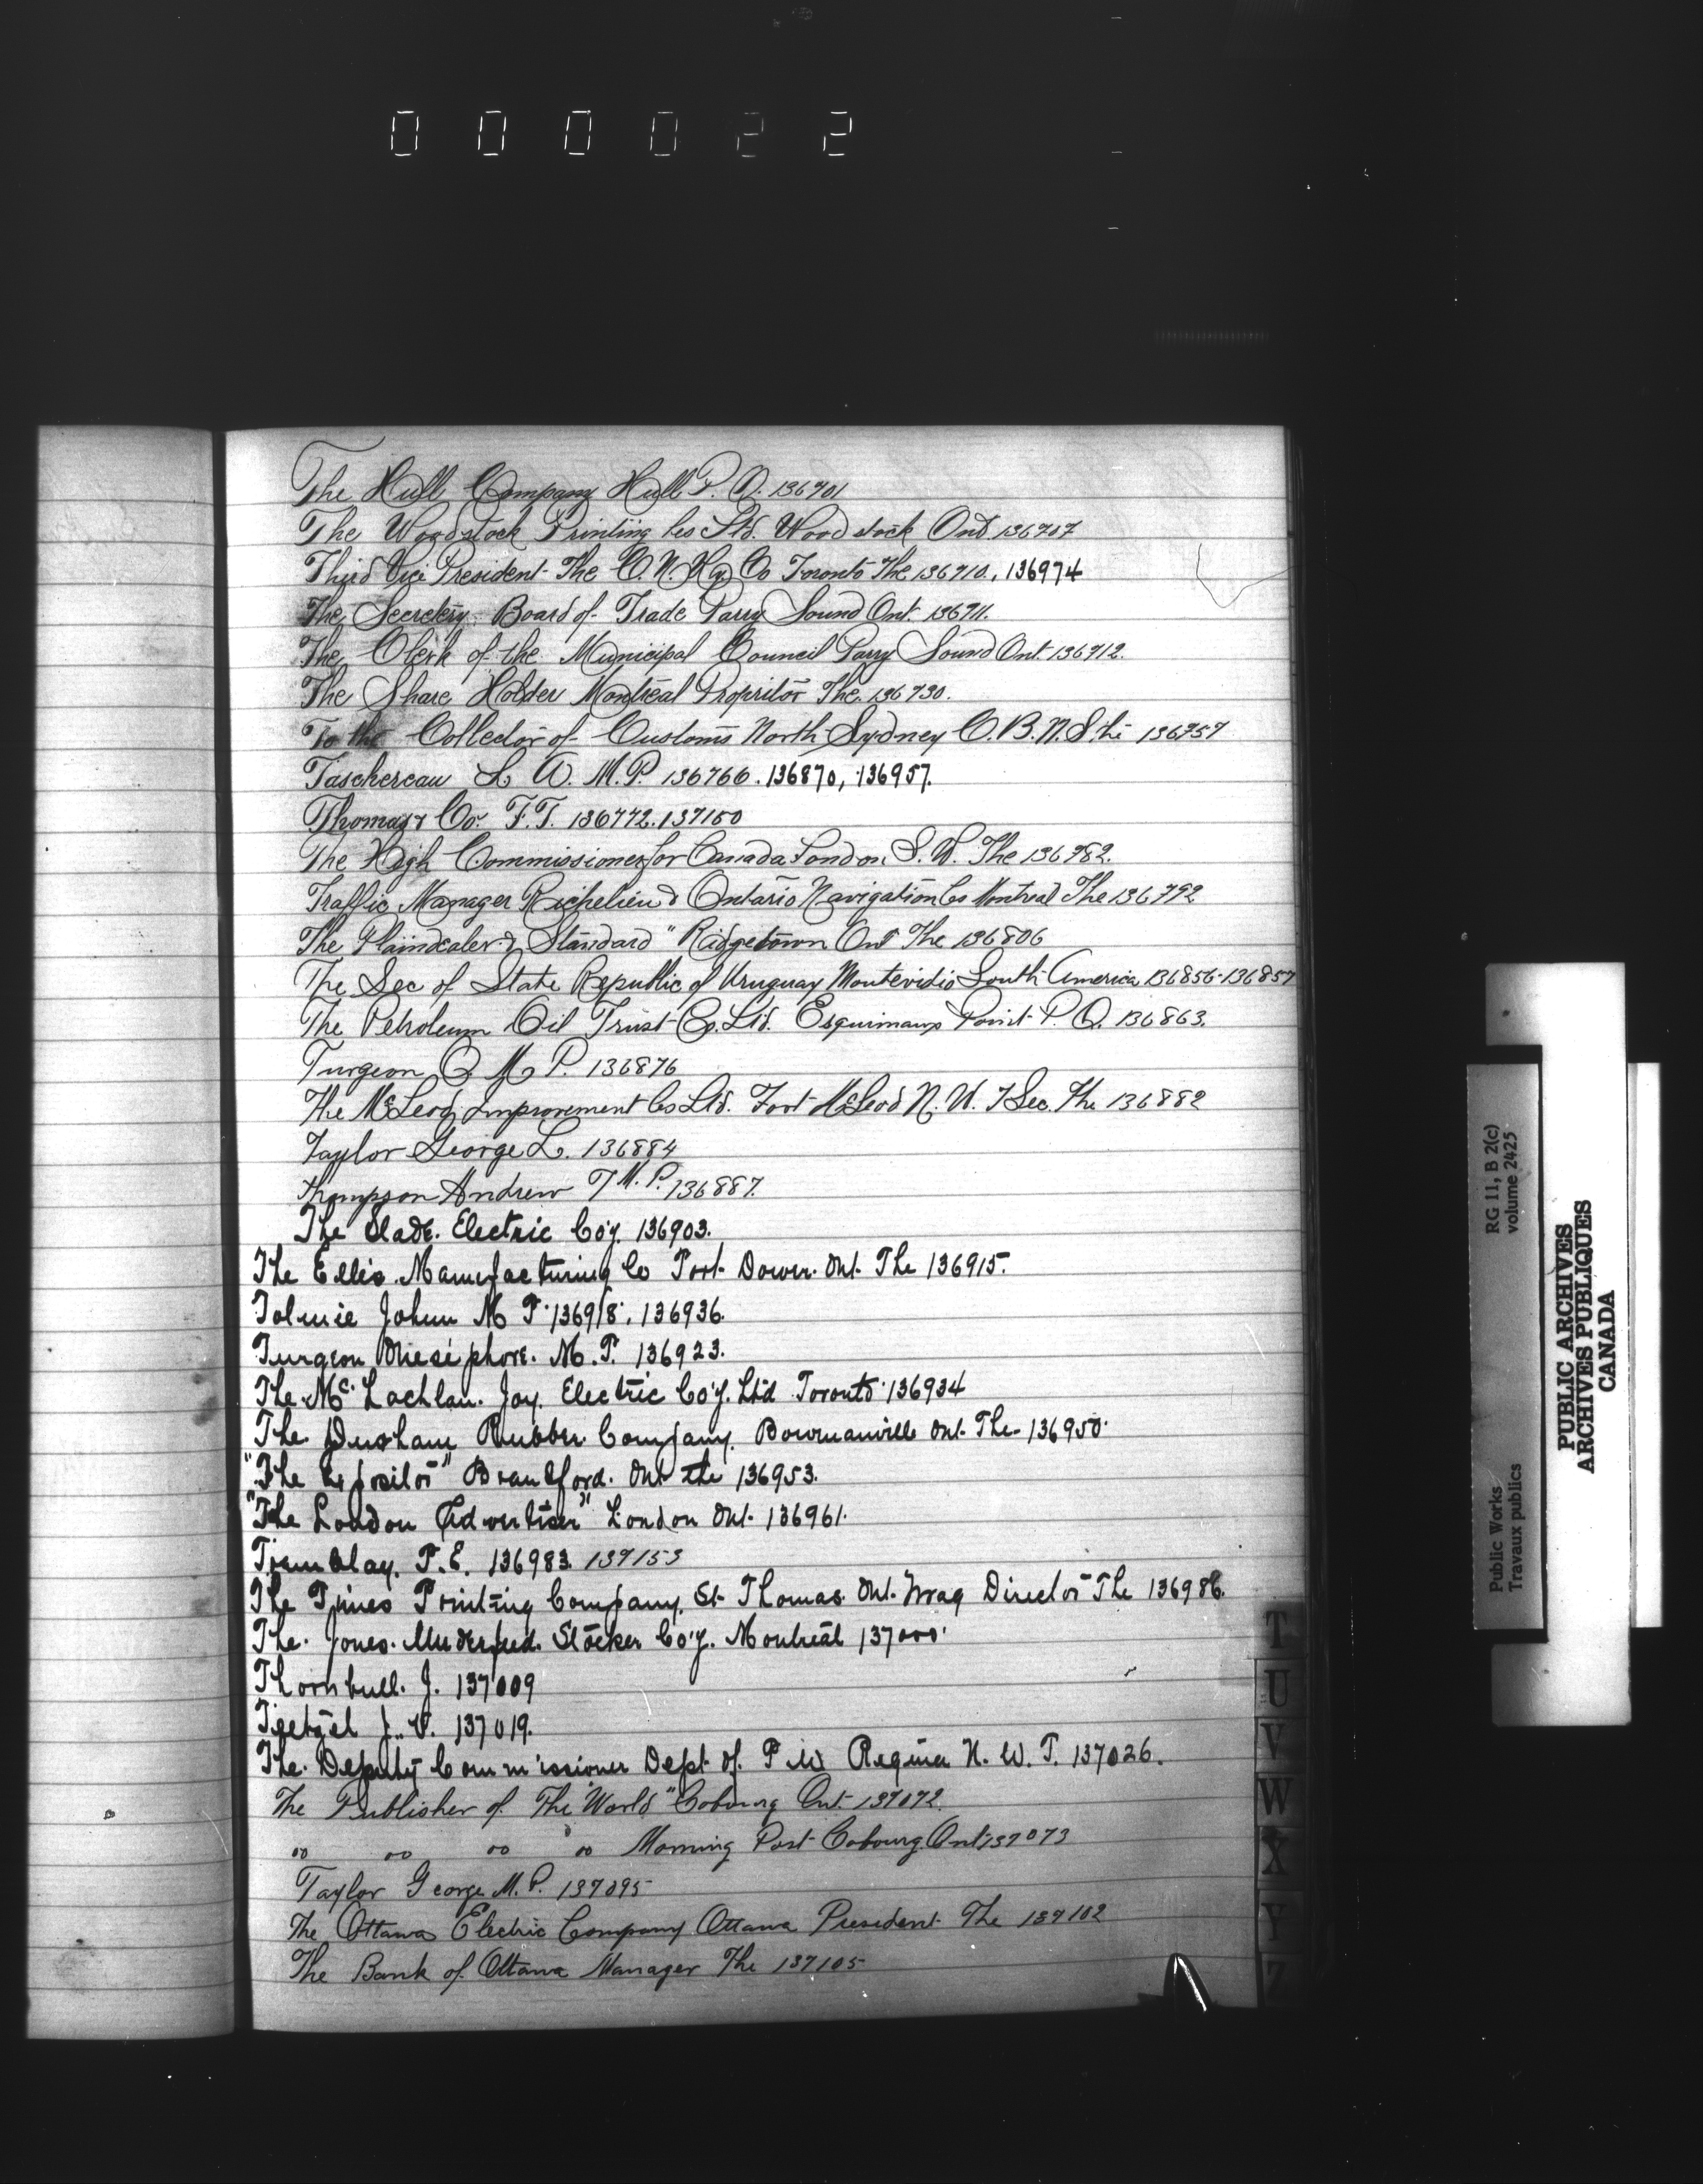 000022
The Hull Company Hull P.Q. 136701
The Woodstock Printing Co Ltd. Woodstock Ont. 136707
Third Vice President The C.N. Ry. Co Toronto The 136710, 136974
The Secretary Board of Trade Parry Sound Ont. 136711.
The Clerk of the Municipal Council Parry Sound Ont. 136712.
The Share Holder Montreal Propritor The. 136730.
To the Collector of Customs North Sydney C.B.N.S. 136757
Taschereau L. A. M.P. 136766. 136870, 136957.
Thomas & Co. F.T. 136772. 137150
The High Commissioner for Canada London, S.W. The 136782.
Traffic Manager Richelieu & Ontario Navigation Co Montreal The 136792
The Plaindealer & Standard" Ridgetown Ont The 136806
The Sec of State Republic of Uruguay Montevidio South America 136856-136857
The Petroleum Oil Trust Co. Ltd. Esquimaux Point P.Q. 136863.
Turgeon O. M.P. 136876
The McLeod Improvement Co Ltd. Fort McLeod N.W.T Sec. The 136882
Taylor George L. 136884
Thompson Andrew T M.P. 136887.
The Slade. Electric Co'y. 136903.
The Ellis Manufacturing Co Port Dover. Ont. The 136915.
Tolmie John M P. 136918, 136936.
Turgeon Onesiphore. M.P. 136923.
The McLachlan. Joy. Electric Co'y. Ltd Toronto 136934
The Durham Rubber Company. Bowmanville Ont. The 136950.
"The Expositor" Brantford. Ont the 136953.
"The London Advertiser" London Ont. 136961.
Tremblay. P.E. 136983. 137153
The Times Printing Company, St Thomas. Ont. Mrag Director The 136986.
The Jones. Underfeed. Stocker Co'y. Montreal 137000.
Thornbull. J. 137009
Tietzel J. V. 137019.
The Deputy Commissioner Dept of P W Regina N.W.T. 137026.
The Publisher of "The World" Cobourg Ont. 137072.
" " " " Morning Post Cobourg. Ont 137073
Taylor George M.P. 137095
The Ottawa Electric Company Ottawa President The 137102
The Bank of Ottawa Manager The 137105
T
U
V
W
X
Y
Z
Public Works
Travaux publics
RG 11, B 2(c)
volume 2425
PUBLIC ARCHIVES
ARCHIVES PUBLIQUES
CANADA